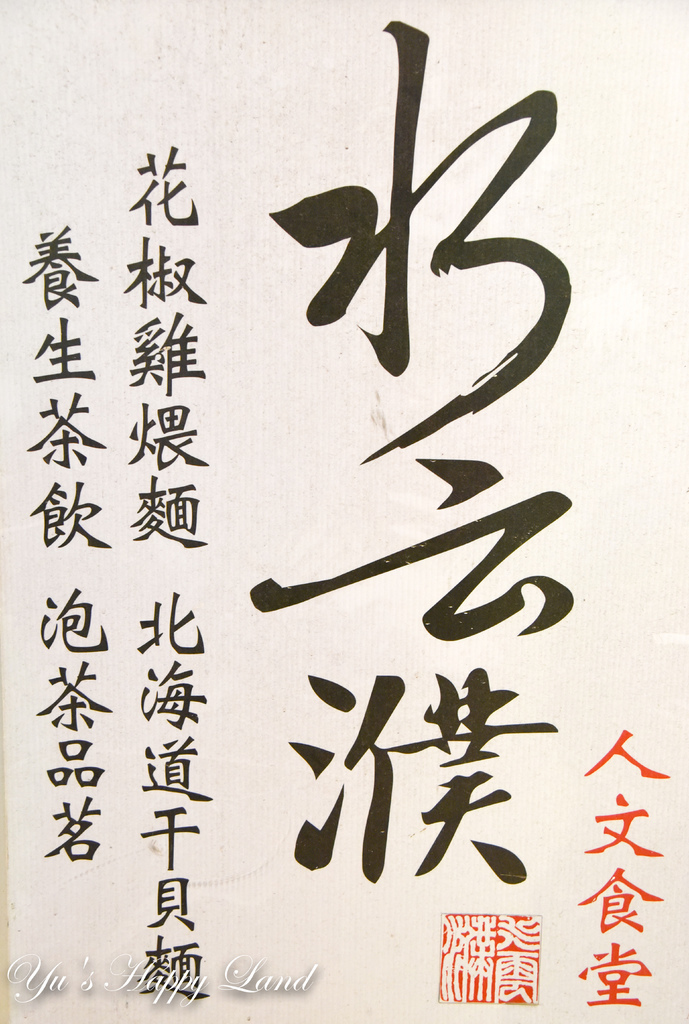 人文食堂
水云濮
花椒雞煨麵 北海道干貝麵
養生茶飲 泡茶品茗
水雲濮
Yu's Happy Land